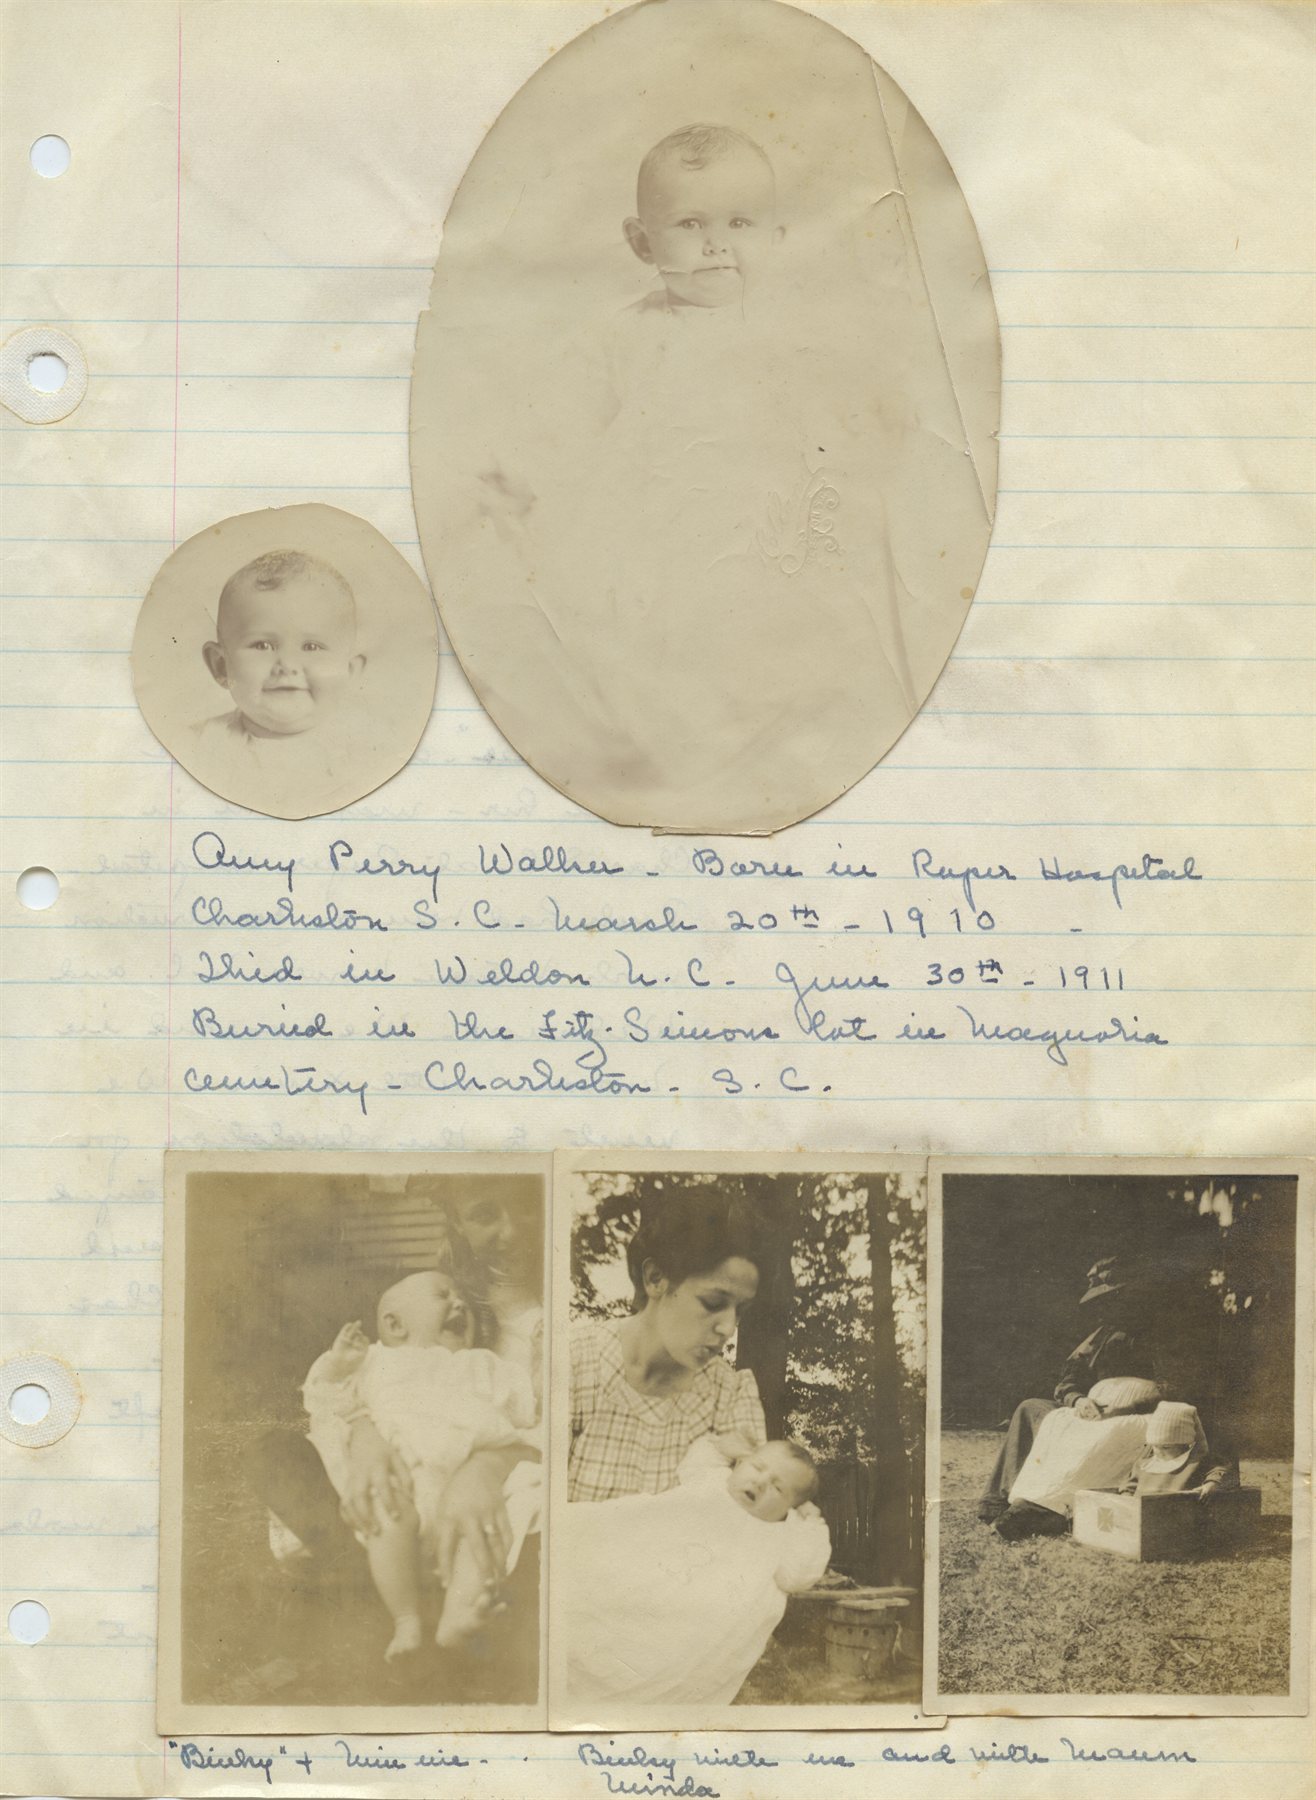 Amy Perry Walker - Born in Roper Hospital
Charleston S. C. - March 20th - 1910 -
Died in Weldon N. C. - June 30th - 1911
Buried in the Fitz-Simons lot in Magnolia
cemetery - Charleston - S. C.
"Binky" + Minnie - . Binky with me and with Maum
Minda